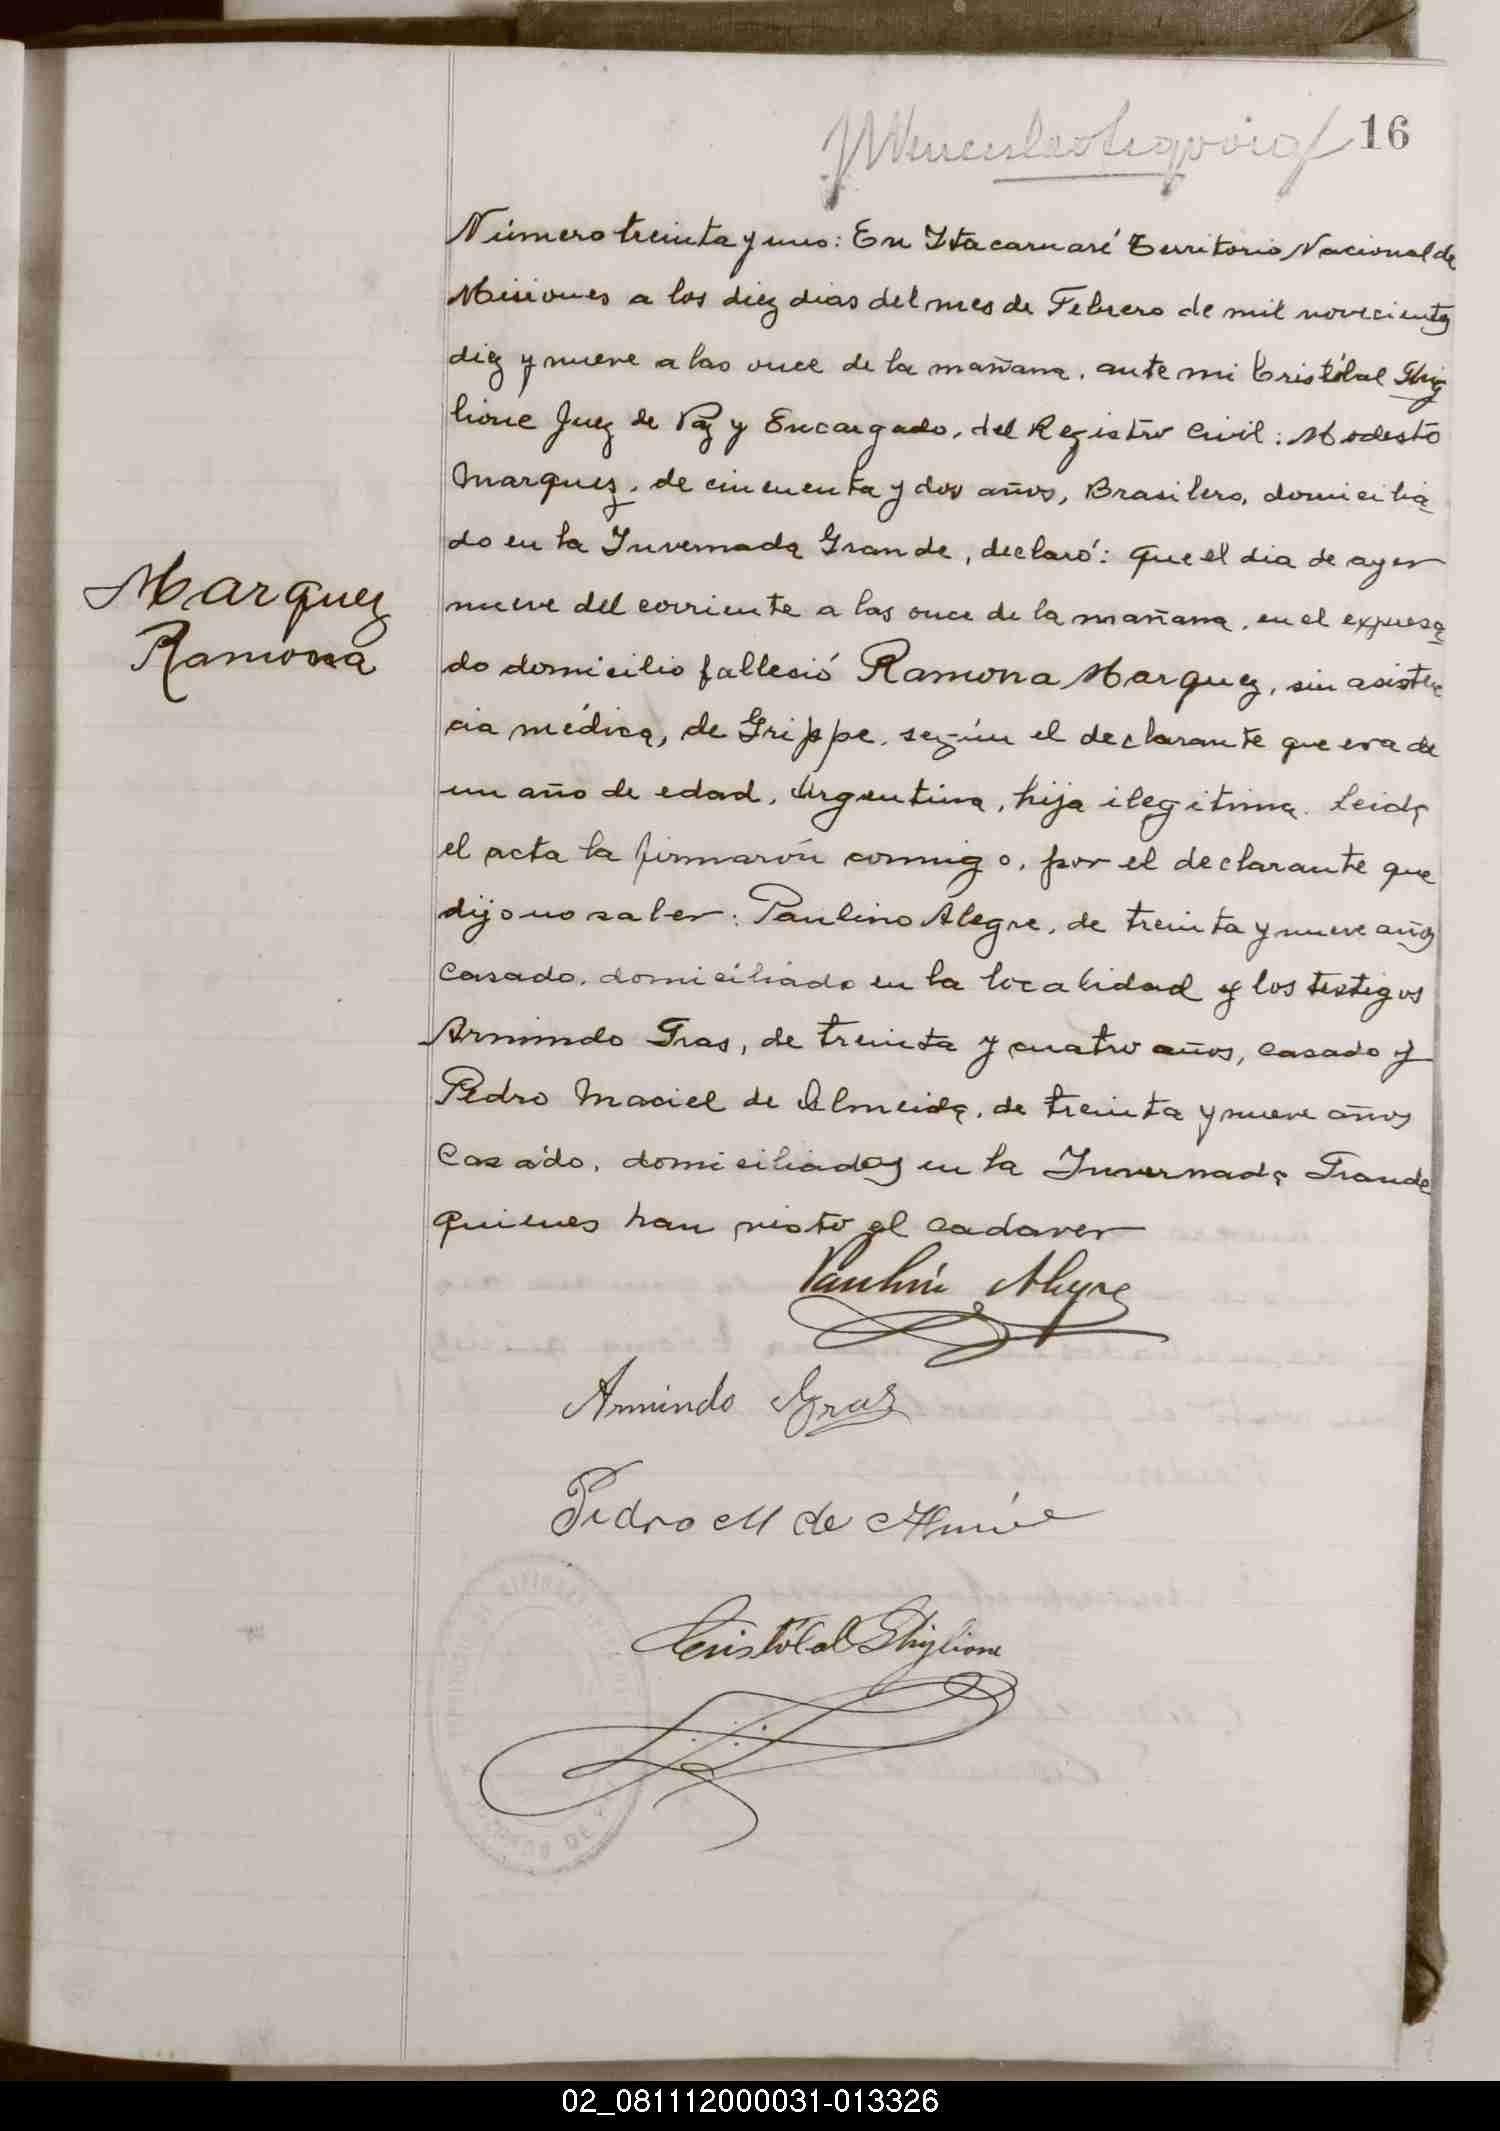 16
Número treinta y uno: En Itacaruaré Territorio Nacional de
Misiones a los diez dias del mes de Febrero de mil novecientos
diez y nueve a las once de la mañana, ante mi Cristóbal Ghig
lione Juez de Paz y Encargado, del Registro Civil: Modesto
Marquez, de cincuenta y dos años, Brasilero, domicilia
do en la Invernada Grande, declaró: que el dia de ayer
nueve del corriente a las once de la mañana, en el expresa
do domicilio fallesió Ramona Marquez, sin asisten
cia médica, de Grippe, según el declarante que era de
un año de edad, Argentina, hija ilegitima. Leida
el acta la firmarón conmigo, por el declarante que
dijo no saber: Paulino Alegre, de treinta y nueve años
casado, domiciliado en la localidad y los testigos
Armindo Gras, de treinta y cuatro años, casado y
Pedro Maciel de Almeida, de treinta y nueve años
Casado, domiciliados en la Invernada Grande
quienes han visto el cadaver
Marquez
Ramona
Paulino Alegre
Armindo Gras
Pedro M de
Cristóbal Ghiglione
02_081112000031-013326